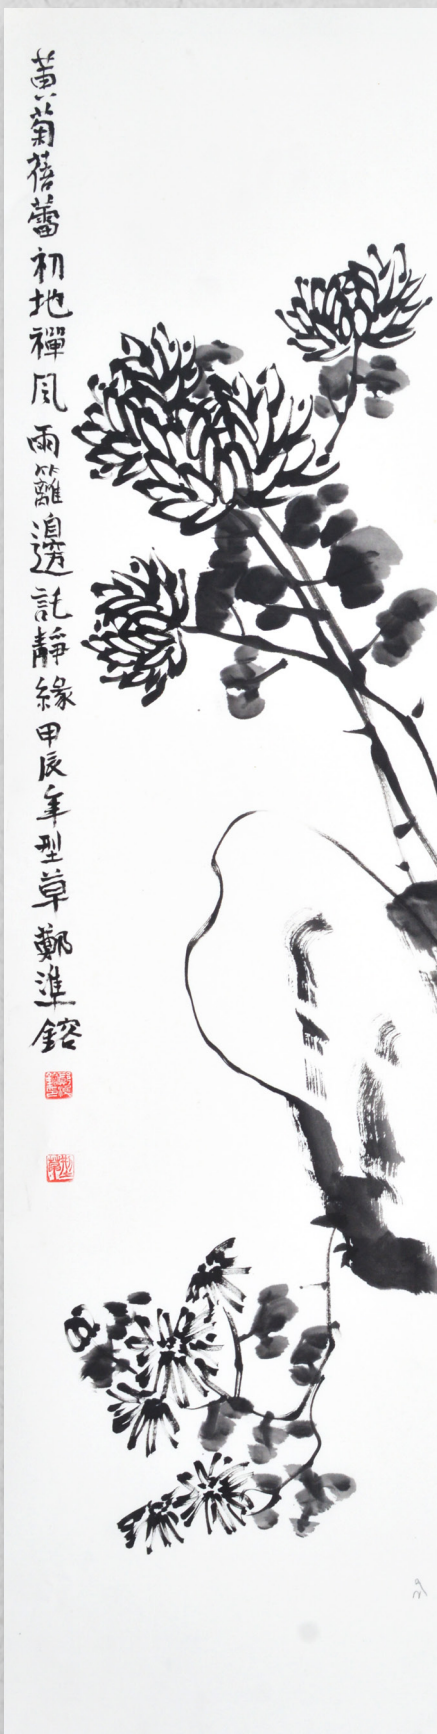 黃菊蓓蕾初地禪風雨籬邊託靜緣甲辰年型草鄭進鎔